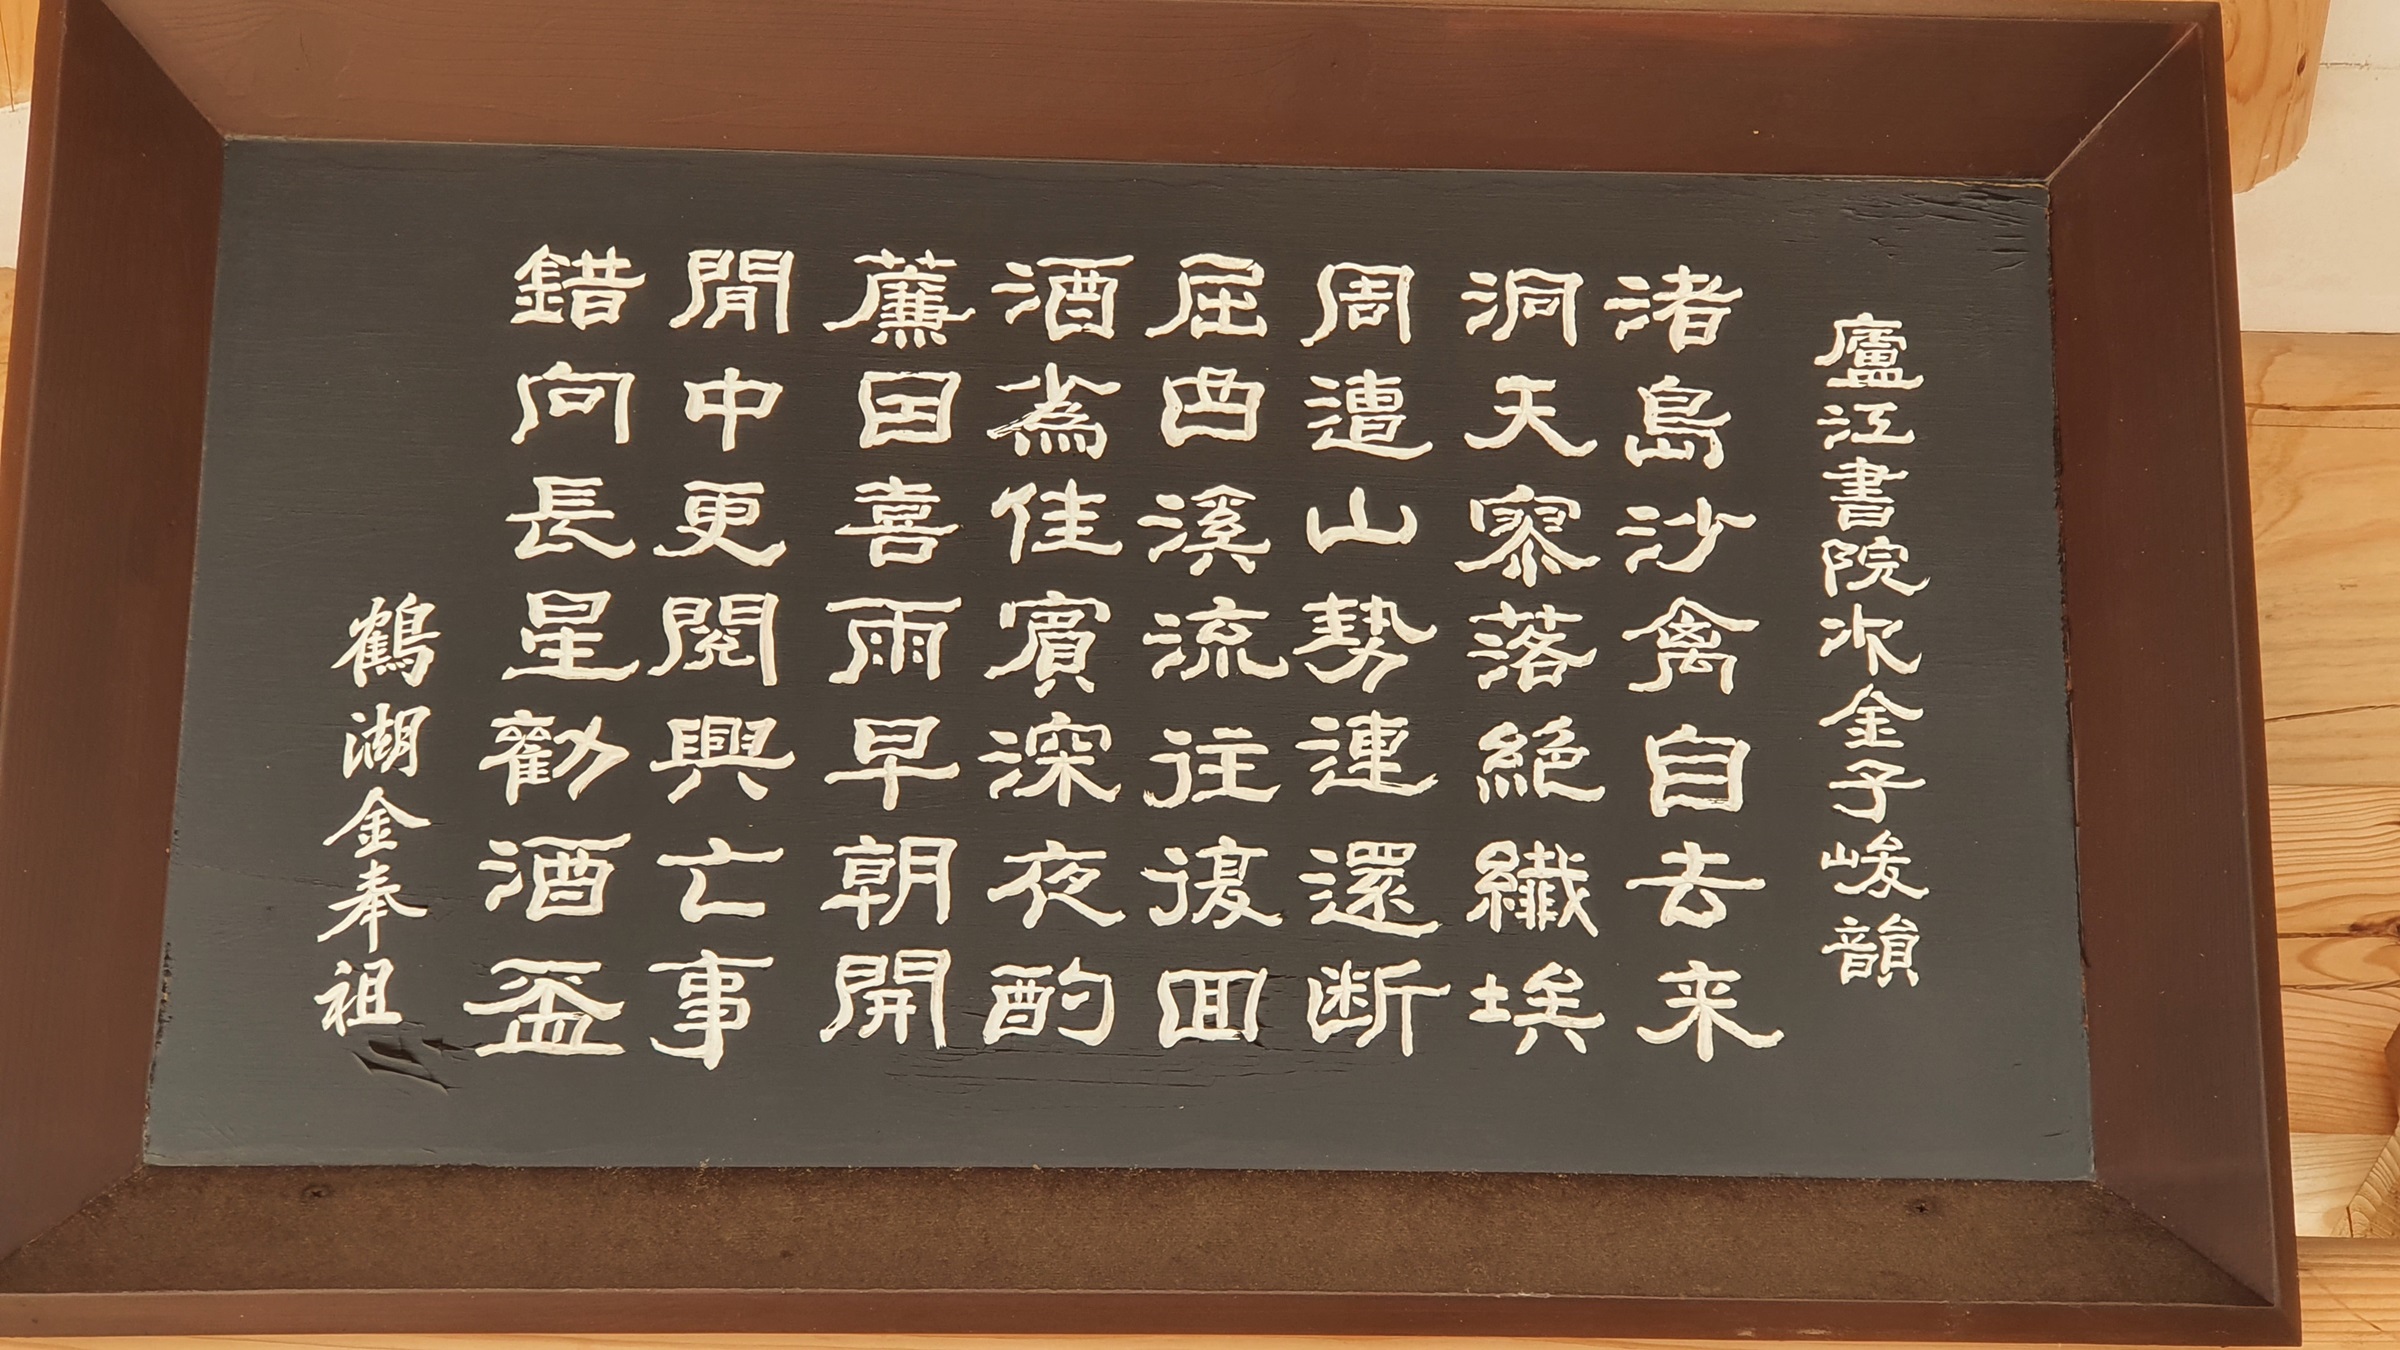 廬江書院次金子峻韻
渚島沙禽自去来
洞天寥落絶纖埃
周遭山勢連還断
屈曲溪流往復囬
酒為佳賓深夜酌
薕因喜雨早朝開
閒中更閱興亡事
錯向長星勸酒盃
鶴湖金奉祖